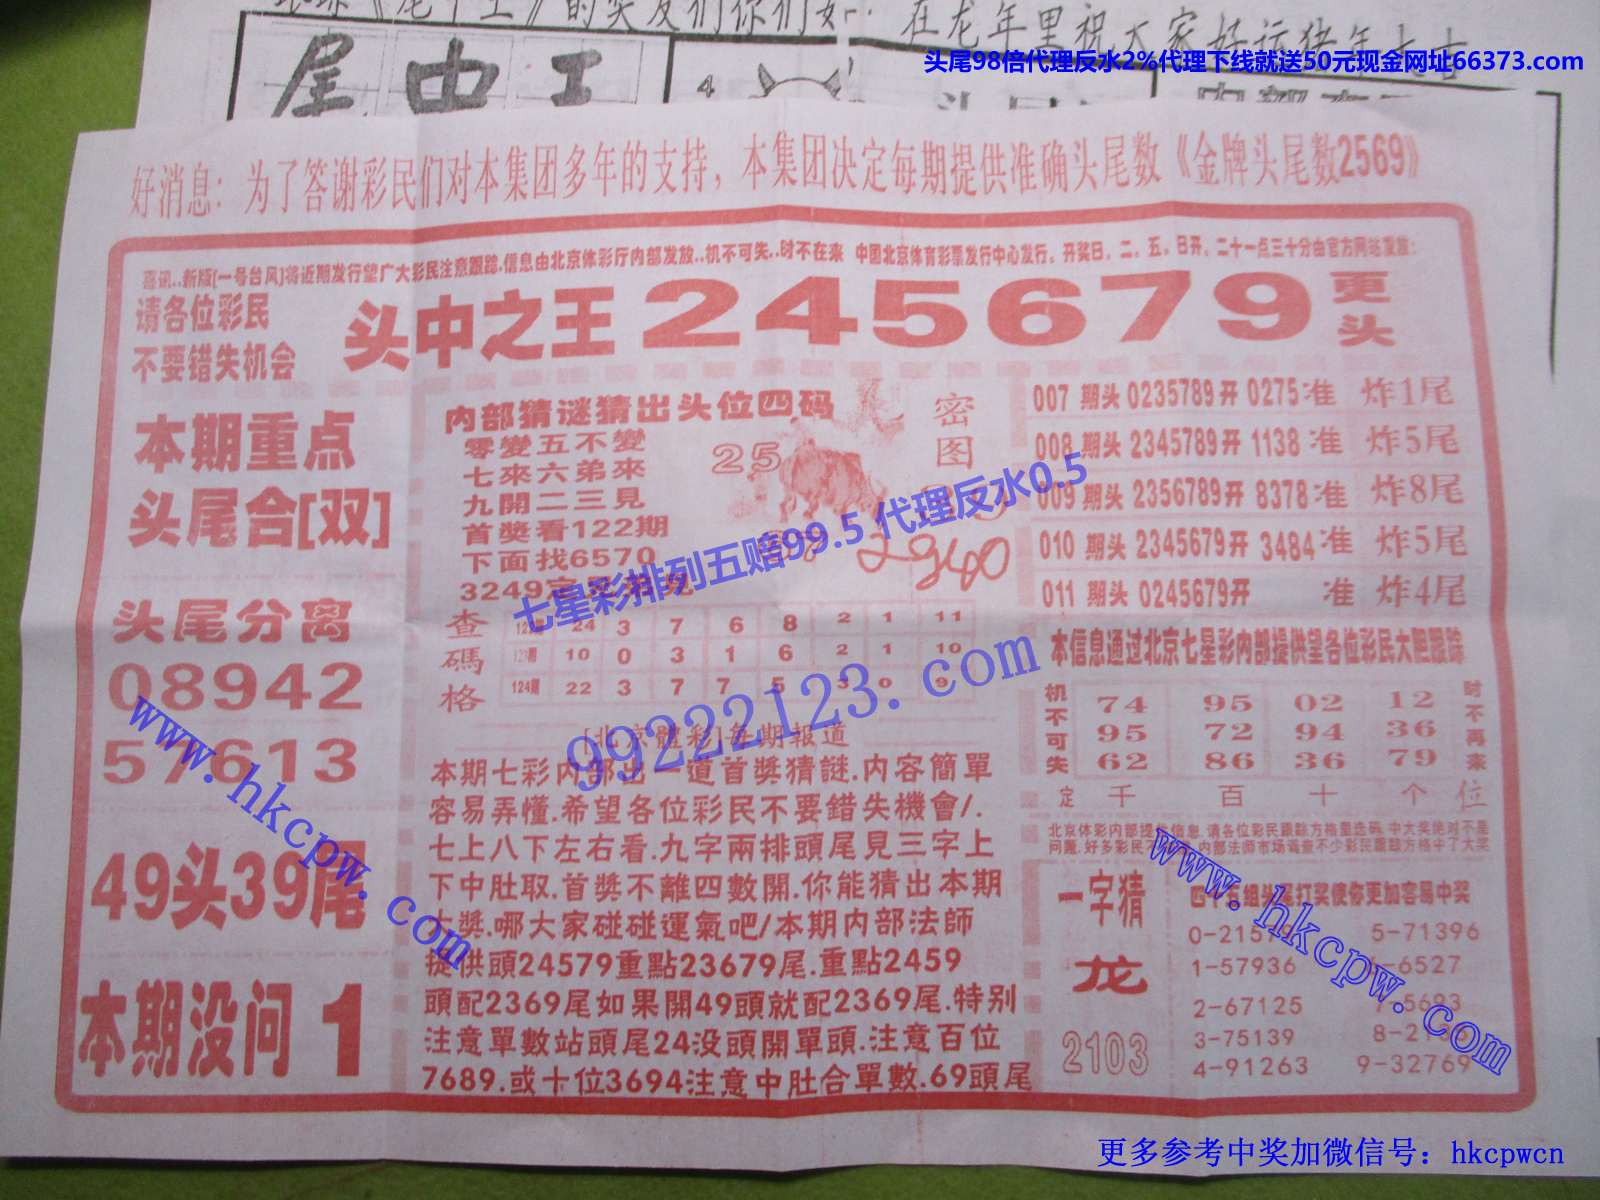 在龙年里祝大家好运猪年大吉
头尾98倍代理反水2%代理下线就送50元现金网址66373.com
尾中王
4
好消息：为了答谢彩民们对本集团多年的支持，本集团决定每期提供准确头尾数《金牌头尾数2569》
喜讯..新版[一号台风]将近期发行望广大彩民注意跟踪.信息由北京体彩厅内部发放..机不可失..时不在来 中国北京体育彩票发行中心发行。开奖日，二。五。日开。二十一点三十分由官方网站发放：
请各位彩民
不要错失机会
头中之王 245679
更头
本期重点
头尾合[双]
头尾分离
08942
57613
49头39尾
本期没问 1
内部猜谜猜出头位四码
零變五不變
七來六弟來
九開二三見
首獎看122期
下面找6570
3249
25
密图
2940
七星彩排列五赔99.5 代理反水0.5
查碼格
122期 24 3 7 6 8 2 1 11
123期 10 0 3 1 6 2 1 10
124期 22 3 7 7 5 3 0 9
99222123.com
[北京體彩]每期報道
本期七彩内部出一道首獎猜謎.内容簡單
容易弄懂.希望各位彩民不要錯失機會/.
七上八下左右看.九字兩排頭尾見三字上
下中肚取.首獎不離四數開.你能猜出本期
七獎.哪大家碰碰運氣吧/本期内部法師
提供頭24579重點23679尾.重點2459
頭配2369尾如果開49頭就配2369尾.特别
注意單數站頭尾24没頭開單頭.注意百位
7689.或十位3694注意中肚合單數.69頭尾
007 期头 0235789开 0275准 炸1尾
008 期头 2345789开 1138 准 炸5尾
009 期头 2356789开 8378 准 炸8尾
010 期头 2345679开 3484准 炸5尾
011 期头 0245679开 准 炸4尾
本信息通过北京七星彩内部提供望各位彩民大胆跟踪
机不可失
74 95 02 12
95 72 94 36
62 86 36 79
时不再来
定 千 百 十 个 位
北京体彩内部提供信息.请各位彩民跟踪方格重选码.中大奖绝对不是
问题.好多彩民不 内部法师市场调查不少彩民跟踪方格中了大奖
一字猜
龙
2103
组头尾打奖使你更加容易中奖
5-71396
1-57936 6527
2-67125 5693
3-75139
4-91263 9-32769
www.hkcpw.com
www.hkcpw.com
更多参考中奖加微信号：hkcpwcn